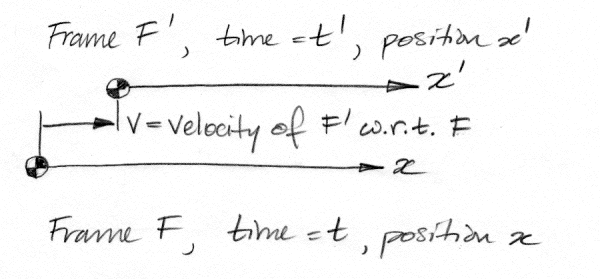 Frame F', time = t', position x'
x'
V = Velocity of F' w.r.t. F
x
Frame F, time = t, position x